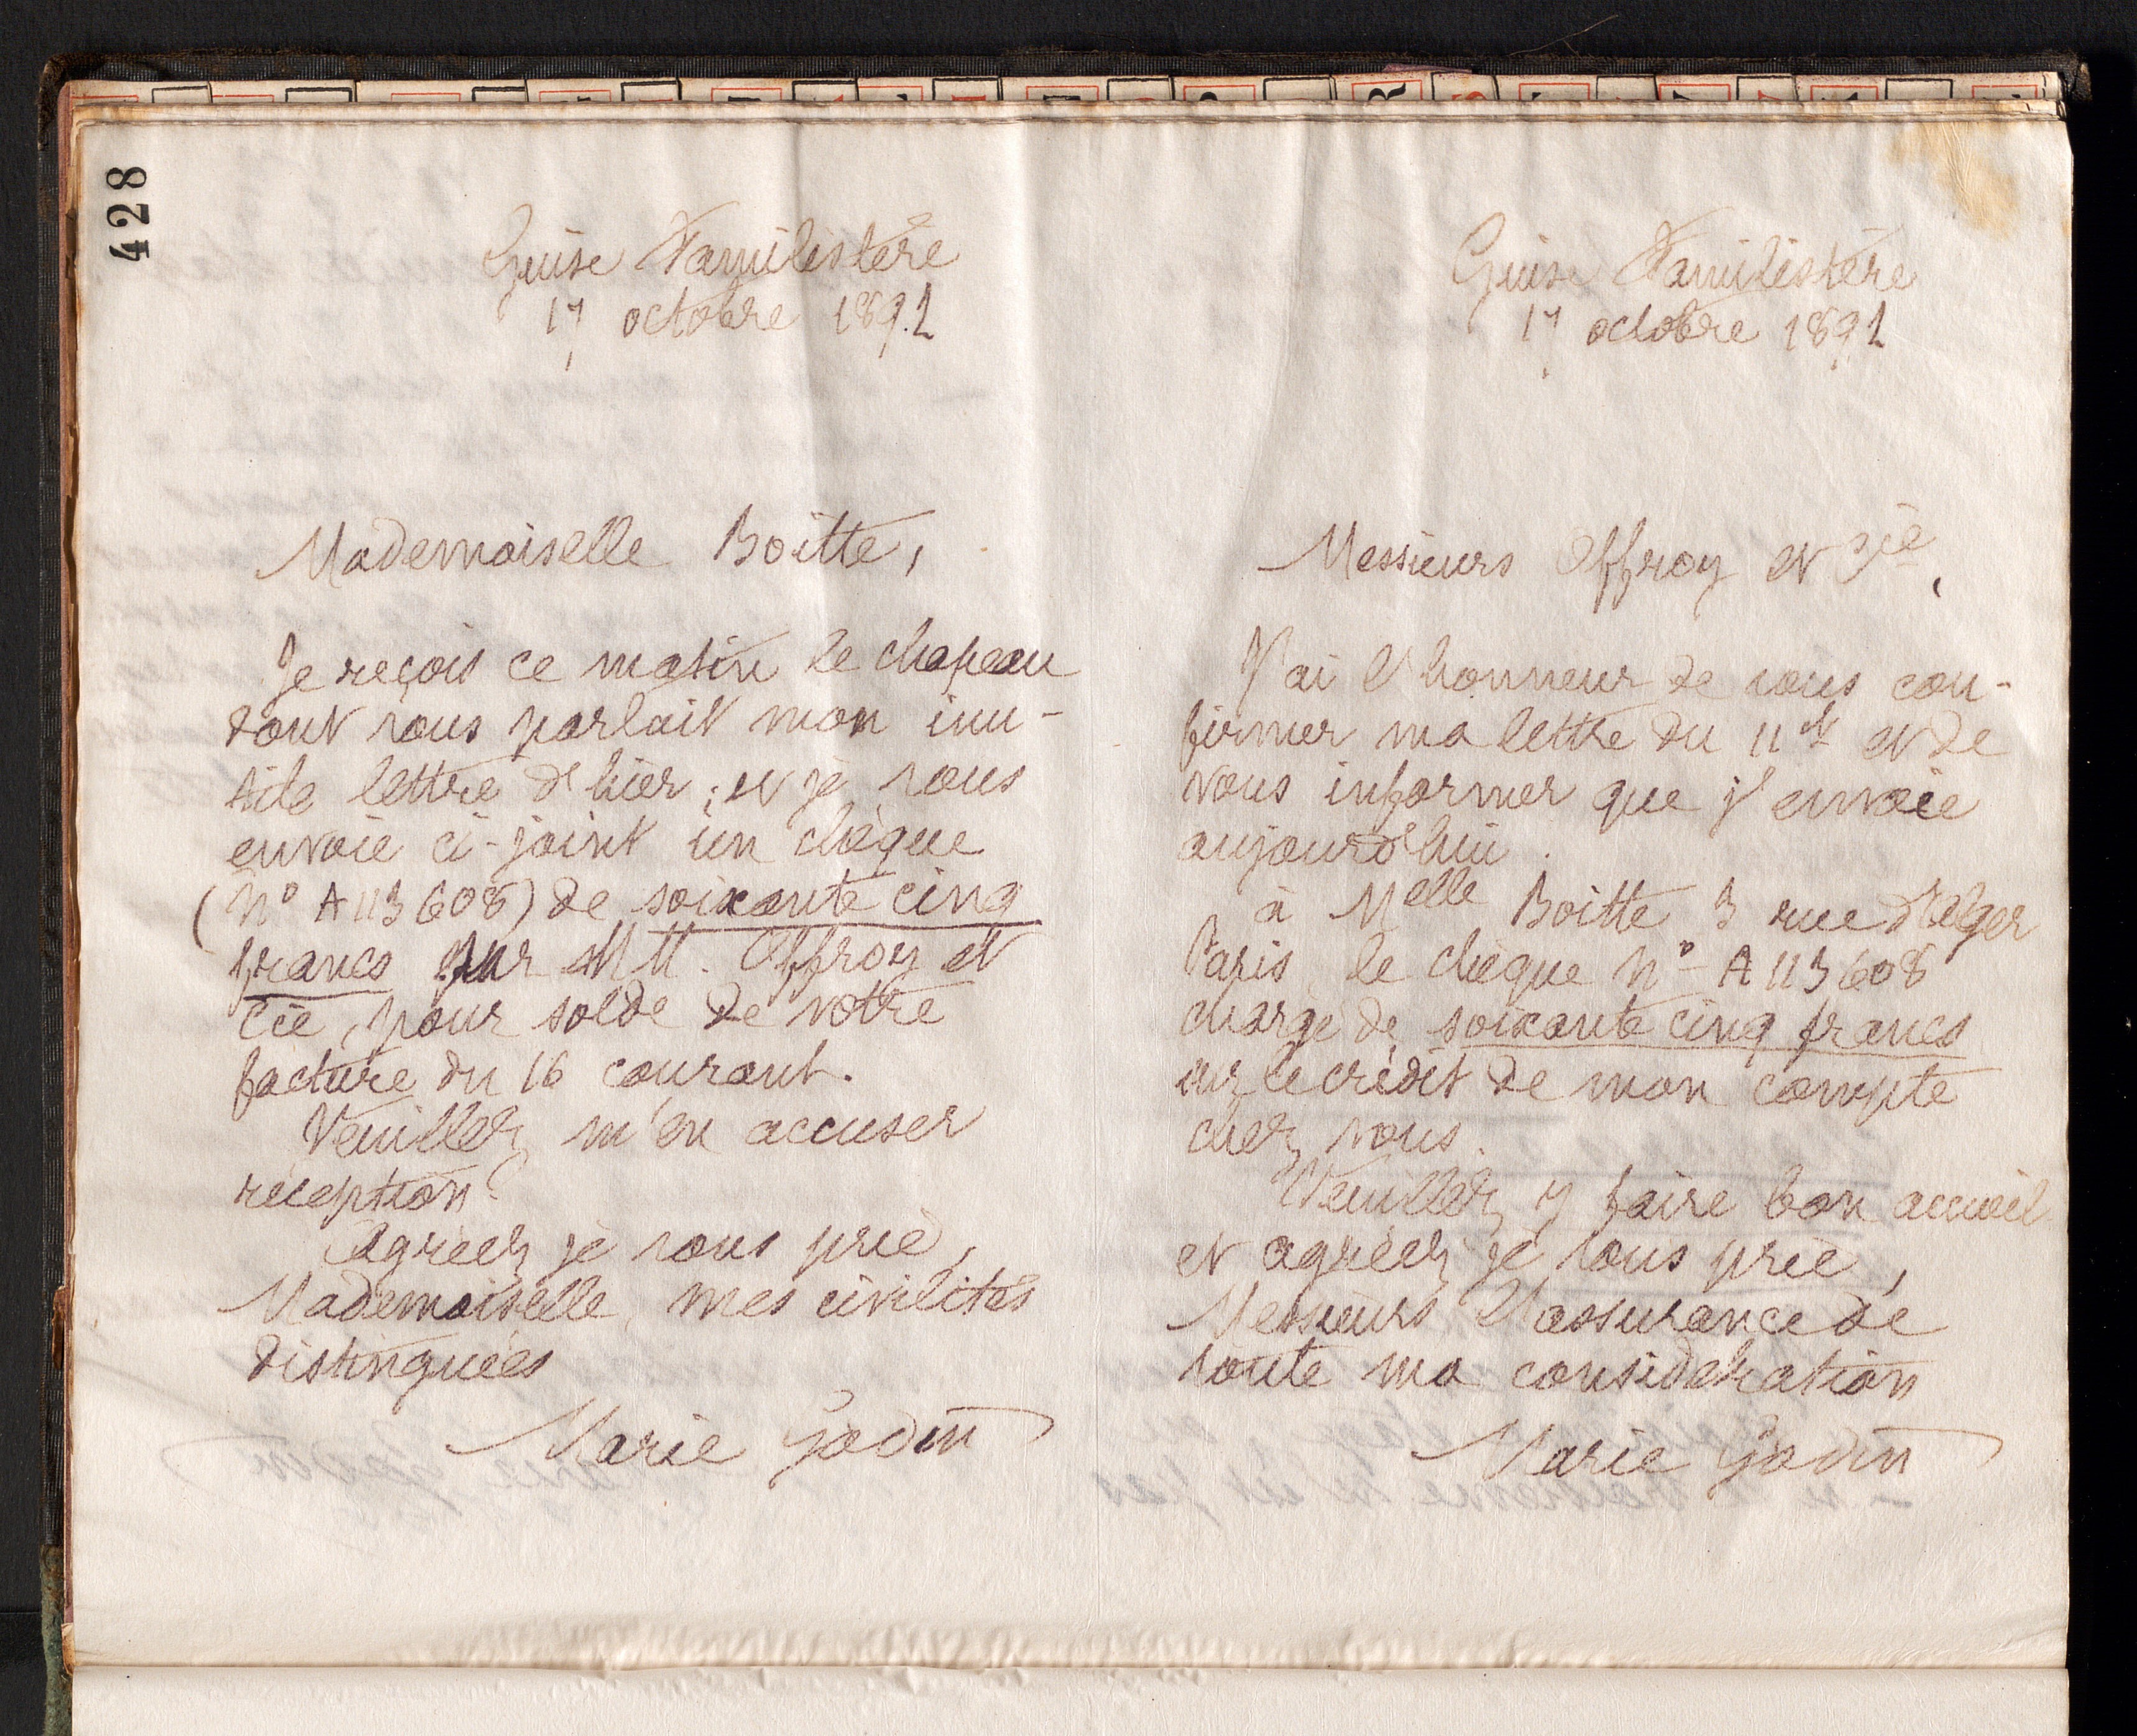 428
Guise Familistère
17 octobre 1891
Mademoiselle Boitte,
Je reçois ce matin le chapeau
dont vous parlait mon inu-
tile lettre d'hier ; et je vous
envoie ci-joint un chèque
(N° A 113608) de soixante cinq
francs sur MM. Offroy et
Cie, pour solde de votre
facture du 16 courant.
Veuillez m'en accuser
réception.
Agréez je vous prie,
Mademoiselle, mes civilités
distinguées
Marie Godin
Guise Familistère
17 octobre 1891
Messieurs Offroy et Cie,
J'ai l'honneur de vous con-
firmer ma lettre du 11 et de
vous informer que j'envoie
aujourd'hui
à Melle Boitte 3 rue d'Alger
Paris, le chèque N° A 113608
charge de soixante cinq francs
sur le crédit de mon compte
chez vous.
Veuillez y faire bon accueil
et agréez je vous prie,
Messieurs l'assurance de
toute ma considération
Marie Godin